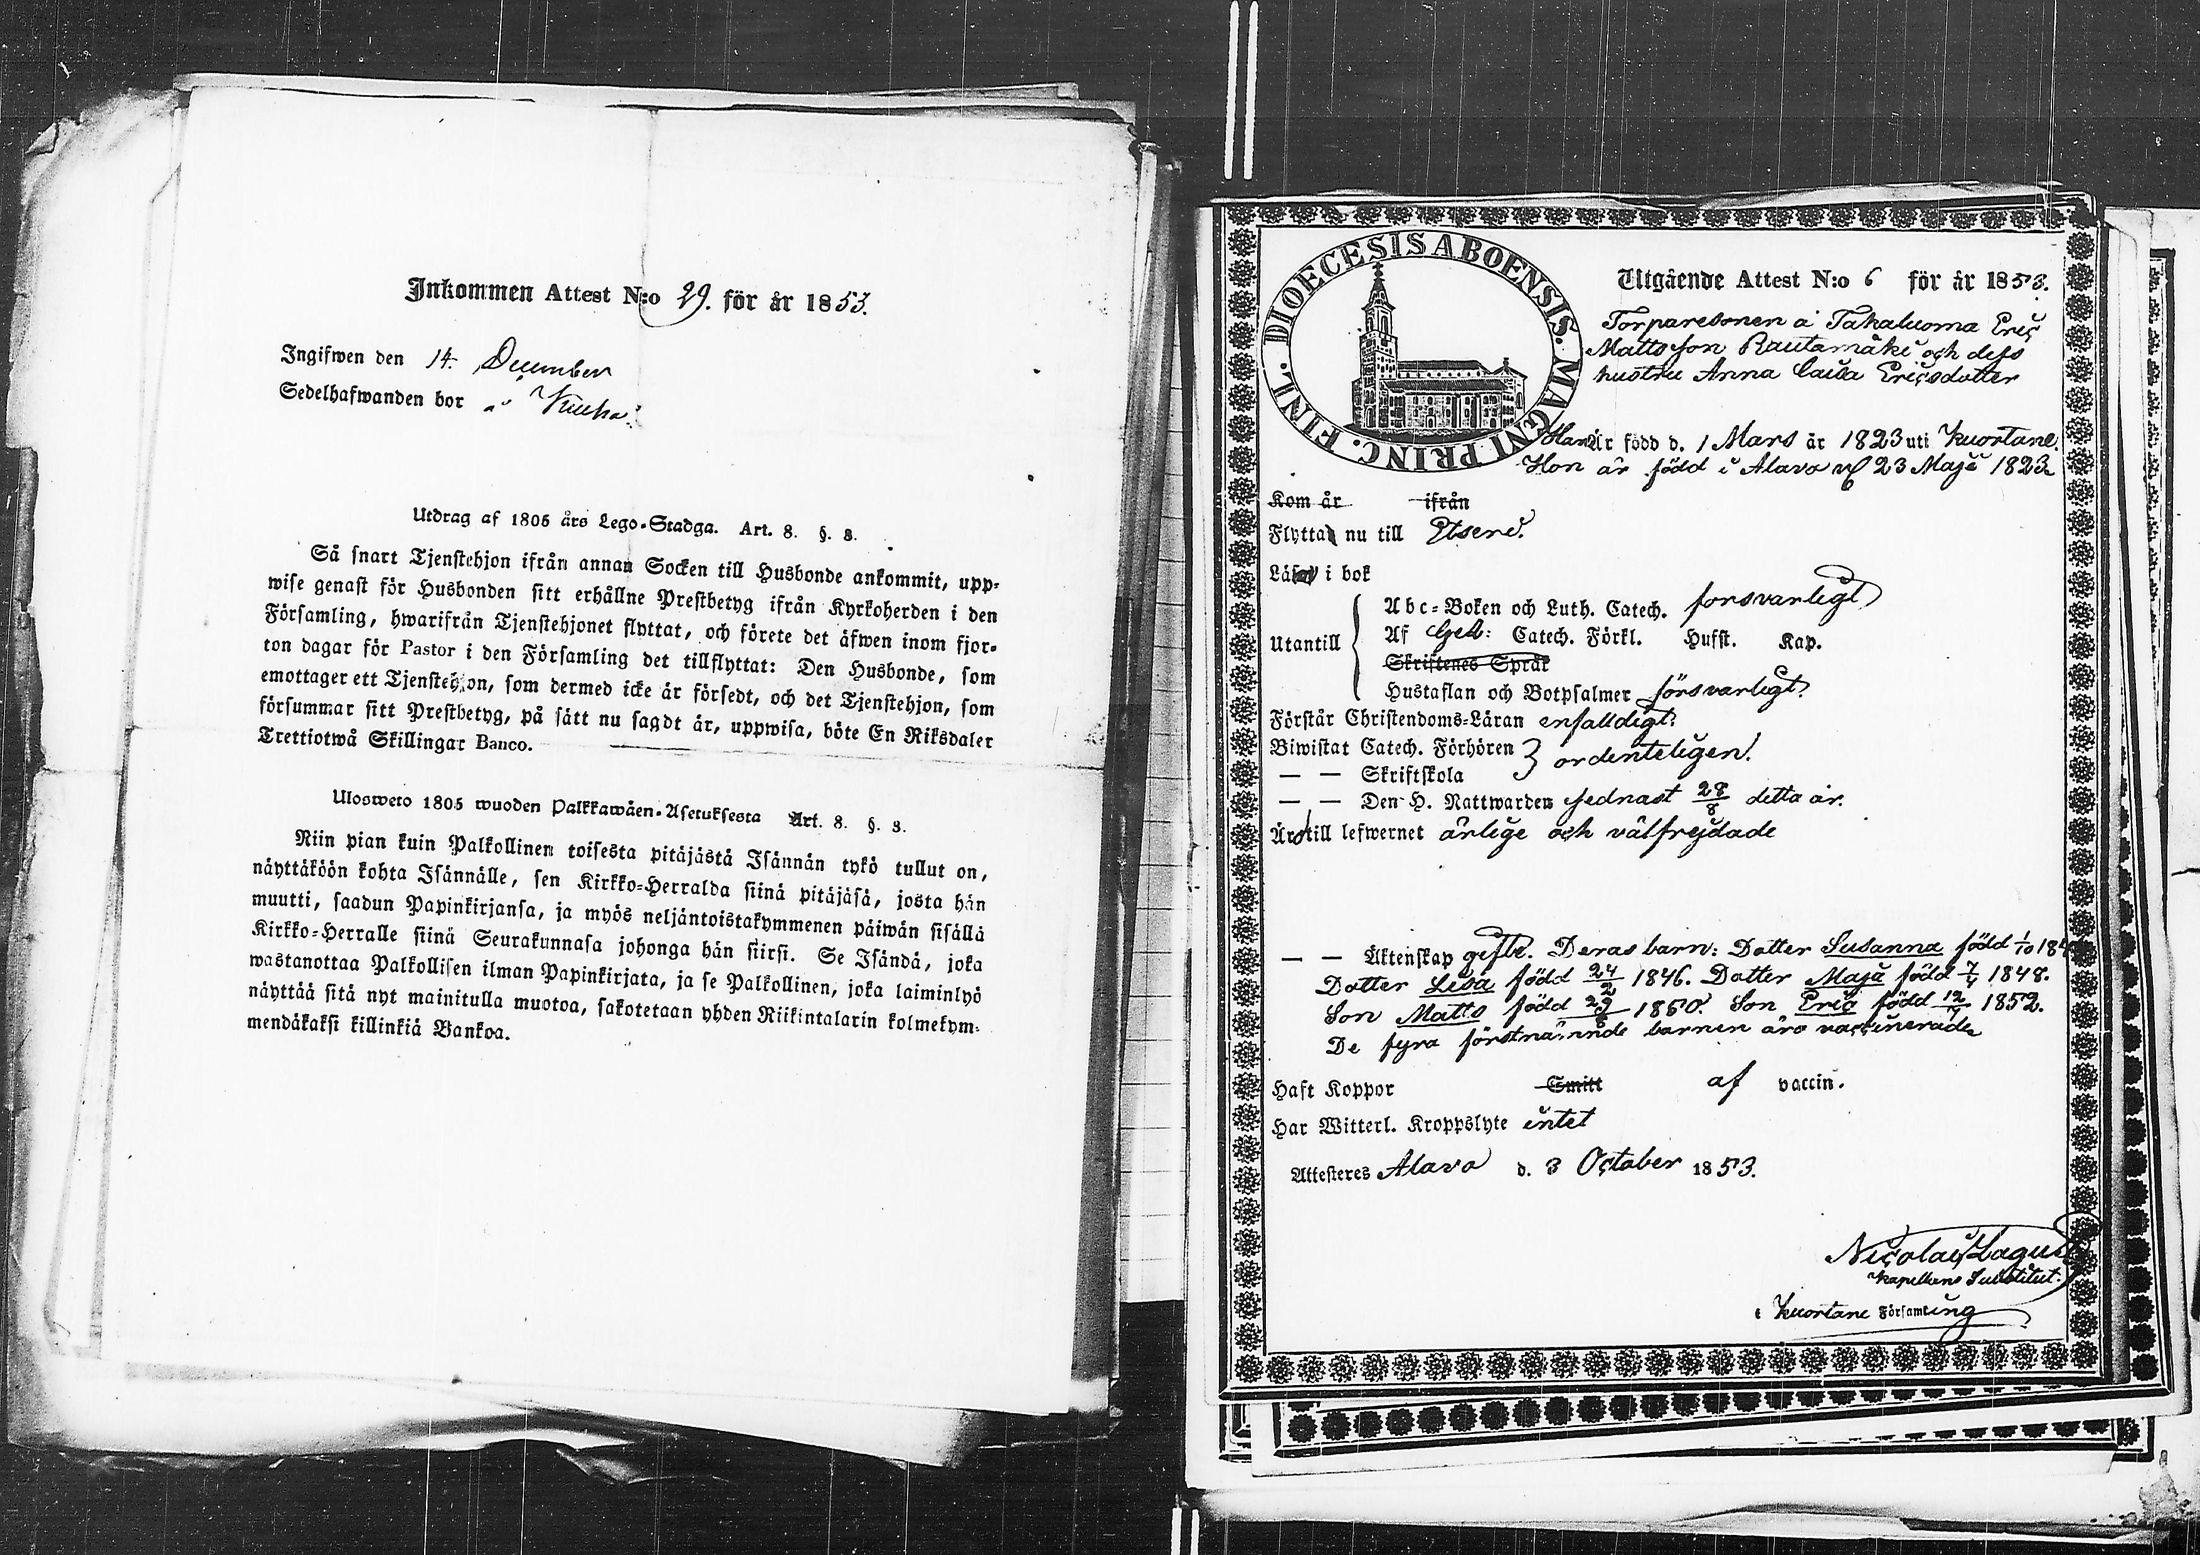 Inkommen Attest N:o 29. för år 1853.
Ingifwen den 14 December
Sedelhafwanden bor å
Utdrag af 1805 års Lego-Stadga. Art. 8. §. 8.
Så snart Tjenstehjon ifrån annan Socken till Husbonde ankommit, upp-
wise genast för Husbonden sitt erhållne Prestbetyg ifrån Kyrkoherden i den
Församling, hwarifrån Tjenstehjonet flyttat, och förete det äfwen inom fjor-
ton dagar för Pastor i den Församling det tillflyttat: Den Husbonde, som
emottager ett Tjenstehjon, som dermed icke är försedt, och det Tjenstehjon, som
försummar sitt Prestbetyg, på sätt nu sagdt är, uppwisa, böte En Riksdaler
Trettiotwå Skillingar Banco.
Ulosweto 1805 wuoden Palkkawäen-Asetuksesta Art. 8. §. 8.
Niin pian kuin Palkollinen toisesta pitäjästä Isännän tykö tullut on,
näyttäköön kohta Isännälle, sen Kirkko-Herralda siinä pitäjäsä, josta hän
muutti, saadun Papinkirjansa, ja myös neljäntoistakymmenen päiwän sisällä
Kirkko-Herralle siinä Seurakunnasa johonga hän siirsi. Se Isändä, joka
wastanottaa Palkollisen ilman Papinkirjata, ja se Palkollinen, joka laiminlyö
näyttää sitä nyt mainitulla muotoa, sakotetaan yhden Riikintalarin kolmekym-
mendäkaksi killinkiä Bankoa.
DIOECESIS ABOENSIS. MAGNI PRINC. FINL.
Utgående Attest N:o 6 för år 1853.
Torparesonen å Tahaluoma Eric
Mattsson Rautamäki och dess
hustru Anna Caisa Ericsdotter
Han Är född d. 1 Mars år 1823 uti Kuortane.
Hon är född i Alavo d 23 Maji 1823
Kom år ifrån
Flytta nu till Etseri.
Läsa i bok
Utantill
Abc-Boken och Luth. Catech. forsvarligt
Af Geb: Catech. Förkl. Husst. Kap.
Skriftenes Språk
Hustaflan och Botpsalmer försvarligt
Förstår Christendoms-Läran enfalldigt
Biwistat Catech. Förhören } ordenteligen!
— — Skriftskola
— — Den H. Nattwarden sednast 28/8 detta år.
Äro till lefwernet ärlige och välfrejdade
— — Äktenskap gifte. Deras barn: Dotter Susanna född 1/10 184
Dotter Lisa född 24/2 1846. Dotter Maja född 7/4 1848.
Son Matts född 1850. Son Eric född 1852.
De fyra förstnämnde barnen äro vaccinerade
Haft Koppor Smitt af vaccin.
Har Witterl. Kroppslyte intet
Attesteres Alavo d. 3 October 1853.
Nicolaus Lagus
Kapellans Substitut.
i Kuortane Församling